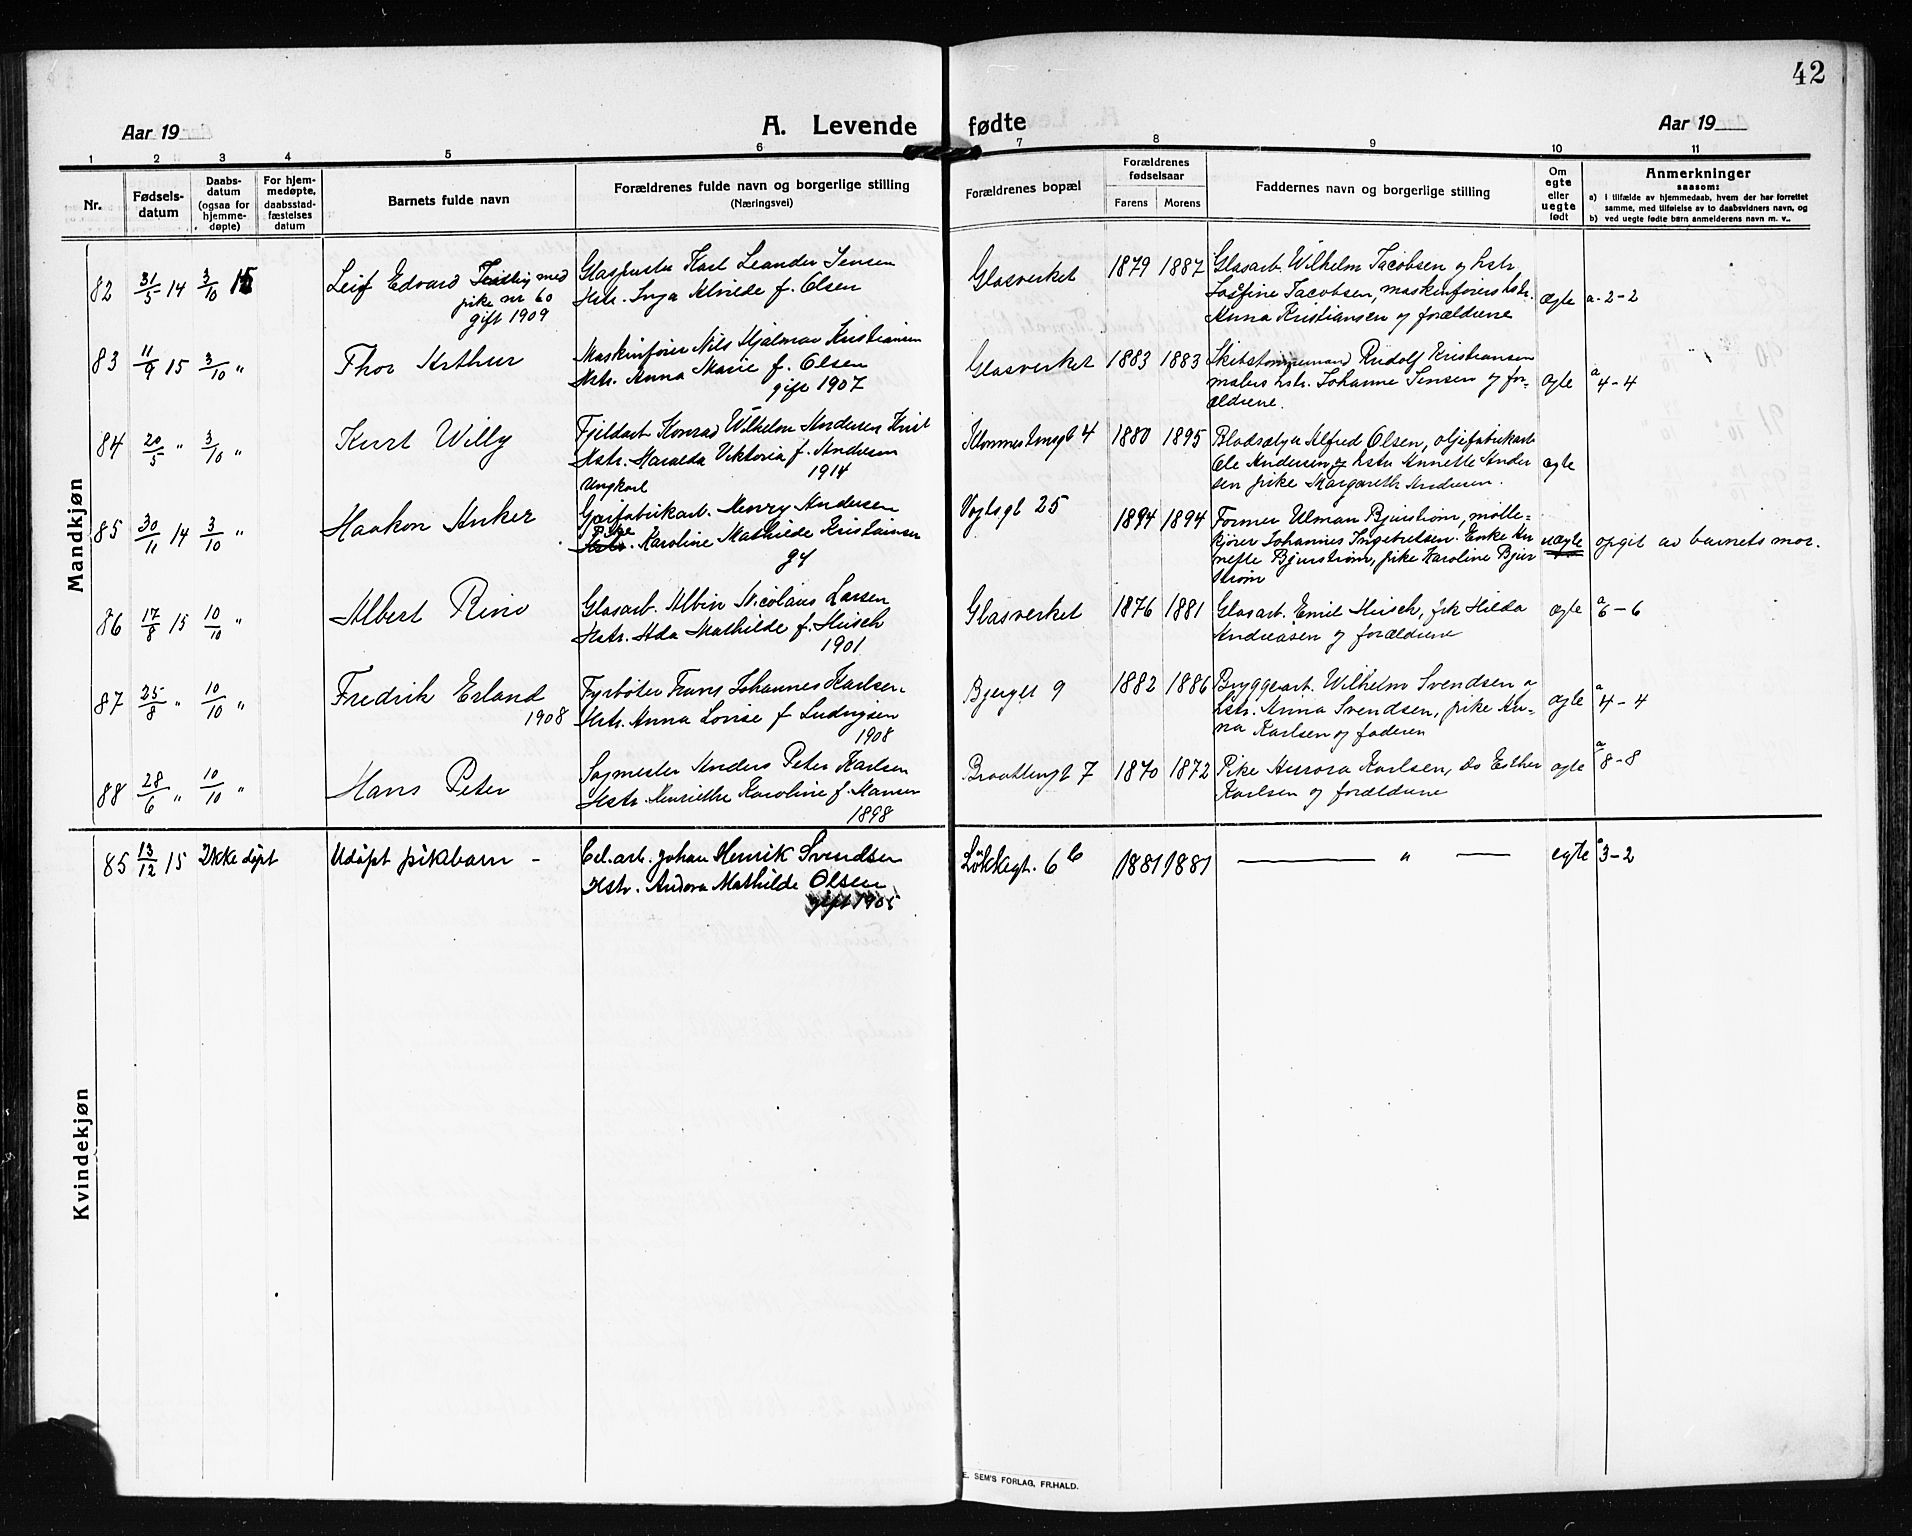 42
Aar 19
A. Levende fødte
Aar 19
1 2 3 4 5 6 7 8 9 10 11
Nr.
Fødsels-
datum
Daabs-
datum
(ogsaa for
hjemme-
døpte)
For hjem-
medøpte,
daabsstad-
fæstelses
datum
Barnets fulde navn
Forældrenes fulde navn og borgerlige stilling
(Næringsvei)
Forældrenes bopæl
Forældrenes
fødselsaar
Farens Morens
Faddernes navn og borgerlige stilling
Om
egte
eller
uegte
født
Anmerkninger
saasom:
a) I tilfælde av hjemmedaab, hvem der har forrettet
samme, med tilføielse av to daabsvidners navn, og
b) ved uegte fødte børn anmelderens navn m. v..
Mandkjøn
82 31/5 14 3/10 15
Leif Edvard Tvilling med
pike nr 60
gift 1909
Glaspuster Karl Leander Jensen
Hstr. Inga Alvilde f. Olsen
Glasverket 1879 1887
Glasarb. Wilhelm Jacobsen og hstr.
Josefine Jacobsen, maskinförers hstr.
Anna Kristiansen og forældrene
ægte a-2-2
83 11/9 15 3/10 "
Thor Arthur
Maskinförer Nils Hjalmar Kristiansen
Hstr. Anna Marie f. Olsen
gift 1907
Glasverket 1883 1883
Skibstömmermand Rudolf Kristiansen
malers hstr. Johanne Jensen og for-
ældrene.
ægte a 4-4
84 20/5 " 3/10 "
Kurt Willy
Fjeldarb Konrad Wilhelm Andersen Krist
Hstr. Haralda Viktoria f. Andersen
1914
1880 1895
Bladsælger Alfred Olsen, oljefabrikarb
Ole Andersen og hstr Annette Ander
sen pike Margareth Andersen.
ægte
85 30/11 14 3/10 "
Haakon Anker
Ungkarl
Henry Andersen
Pike
Hstr. Karoline Mathilde Kristiansen
Vogtsgt 25 1894 1894
Former Ulman Bjurstrøm, mølle-
kjører Johannes Ingebretsen. Enke An
nette Bjurstrøm, pike Karoline Bjur
strøm
uægte opgit av barnets mor.
86 17/8 15 10/10 "
Albert Rino
Glasarb. Albin Nicolaus Larsen
Hstr. Ada Mathilde f. Hirsch
1901
Glasverket 1876 1881
Glasarb. Emil Hirsch, frk Hilda
Andreasen og forældrene
ægte a 6-6
87 25/8 " 10/10 "
Fredrik Erland
1908
Fyrböter Frans Johannes Karlsen
Hstr. Anna Lovise f Ludvigsen
1908
Bjerget 9 1882 1886
Bryggearb. Wilhelm Svendsen og
hstr. Anna Svendsen, pike An-
na Karlsen og faderen
ægte a 4-4
88 28/6 " 10/10 "
Hans Peter
Sagmester Anders Peter Karlsen
Hstr. Henriette Karoline f. Hansen
1898
Braatengt 7 1870 1872
Pike Aurora Karlsen, Do Esther
Karlsen og forældrene
ægte a 8-8
Kvindekjøn
85 13/12 15 Ikke døpt
Udöpt pikbarn -
Cel.arb. Johan Henrik Svendsen
Hstr. Andora Mathilde Olsen
gift 1905
Løkkegt. 6 b 1881 1881
— " —
egte a 3-2
E. SEM'S FORLAG, FR.HALD.